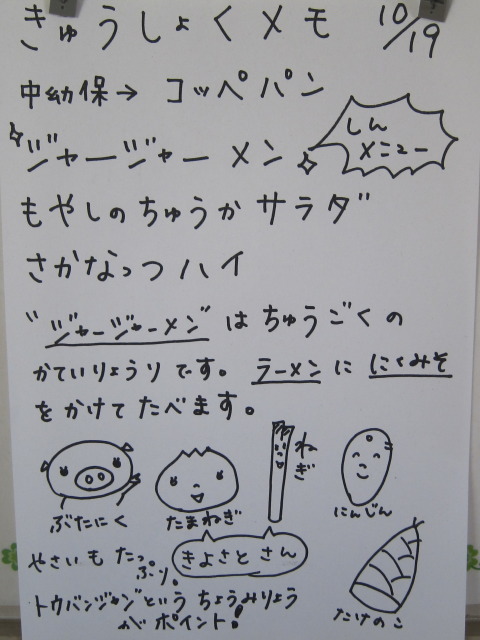 きゅうしょくメモ 10/19
中幼保→ コッペパン
ジャージャーメン
しん
メニュー
もやしのちゅうかサラダ
さかなっつハイ
"ジャージャーメン"はちゅうごくの
かていりょうりです。ラーメンににくみそ
をかけてたべます。
ぶたにく
たまねぎ
ねぎ
にんじん
やさいもたっぷり。
きよさとさん
たけのこ
トウバンジャンというちょうみりょう
がポイント!